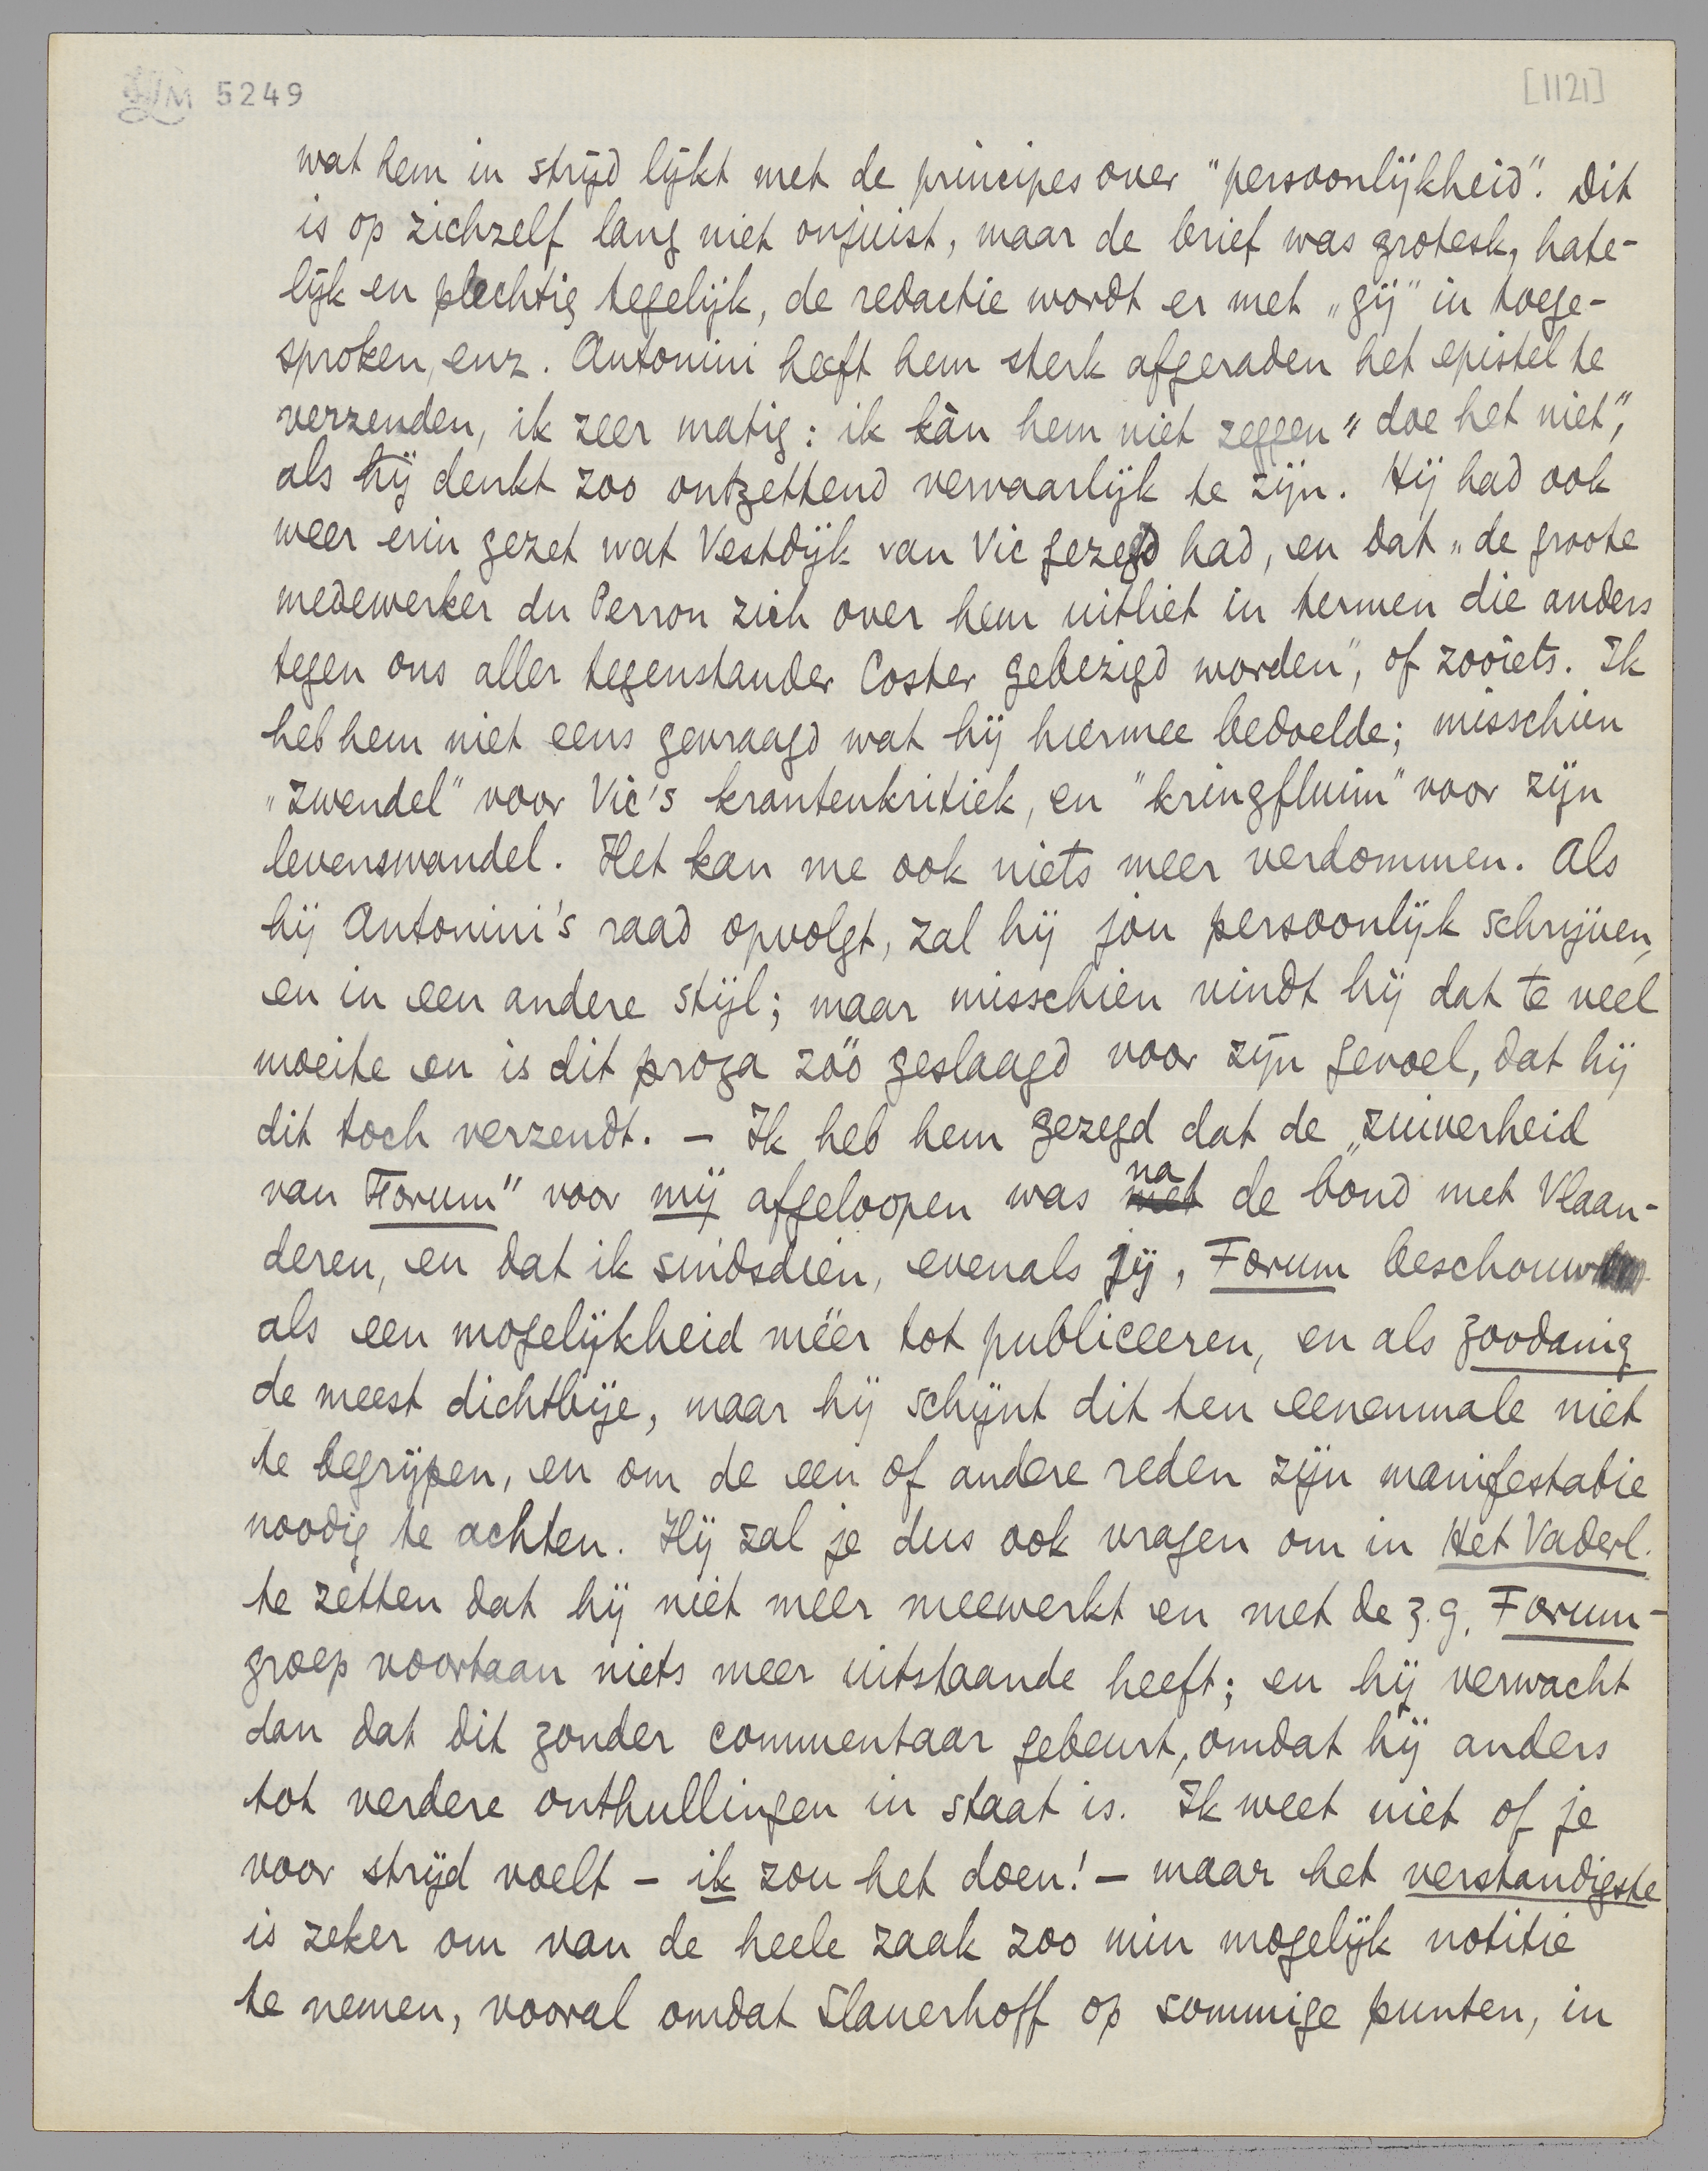 LM 5249
[1121]
wat hem in strijd lijkt met de principes over "persoonlijkheid". Dit
is op zichzelf lang niet onjuist, maar de brief was grotesk, hate-
lijk en plechtig tegelijk, de redactie wordt er met „gij" in toege-
sproken, enz. Antonini heeft hem sterk afgeraden het epistel te
verzenden, ik zeer matig: ik kàn hem niet zeggen „doe het niet",
als hij denkt zoo ontzettend vervaarlijk te zijn. Hij had ook
weer erin gezet wat Vestdijk van Vic gezegd had, en dat „de groote
medewerker du Perron zich over hem uitliet in termen die anders
tegen ons aller tegenstander Coster gebezigd worden", of zooiets. Ik
heb hem niet eens gevraagd wat hij hiermee bedoelde; misschien
"zwendel" voor Vic's krantenkritiek, en "kringfluim" voor zijn
levenswandel. Het kan me ook niets meer verdommen. Als
hij Antonini's raad opvolgt, zal hij jou persoonlijk schrijven,
en in een andere stijl; maar misschien vindt hij dat te veel
moeite en is dit proza zóó geslaagd voor zijn gevoel, dat hij
dit toch verzendt. – Ik heb hem gezegd dat de „zuiverheid
van Forum" voor mij afgeloopen was met na de bond met Vlaan-
deren, en dat ik sindsdien, evenals jij, Forum beschouw
als een mogelijkheid méér tot publiceeren, en als zoodanig
de meest dichtbije, maar hij schijnt dit ten eenenmale niet
te begrijpen, en om de een of andere reden zijn manifestatie
noodig te achten. Hij zal je dus ook vragen om in Het Vaderl.
te zetten dat hij niet meer meewerkt en met de z.g. Forum-
groep voortaan niets meer uitstaande heeft; en hij verwacht
dan dat dit zonder commentaar gebeurt, omdat hij anders
tot verdere onthullingen in staat is. Ik weet niet of je
voor strijd voelt – ik zou het doen! – maar het verstandigste
is zeker om van de heele zaak zoo min mogelijk notitie
te nemen, vooral omdat Slauerhoff op sommige punten, in